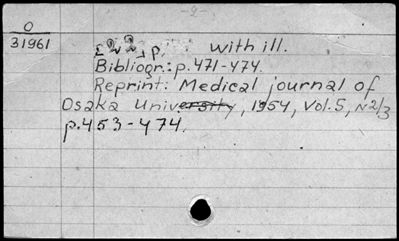 -2-
O
31961
[22] p. with ill.
Bibliogr.: p.471-474.
Reprint: Medical journal of
Osaka University, 1954, Vol.5, N2/3
p.453-474.